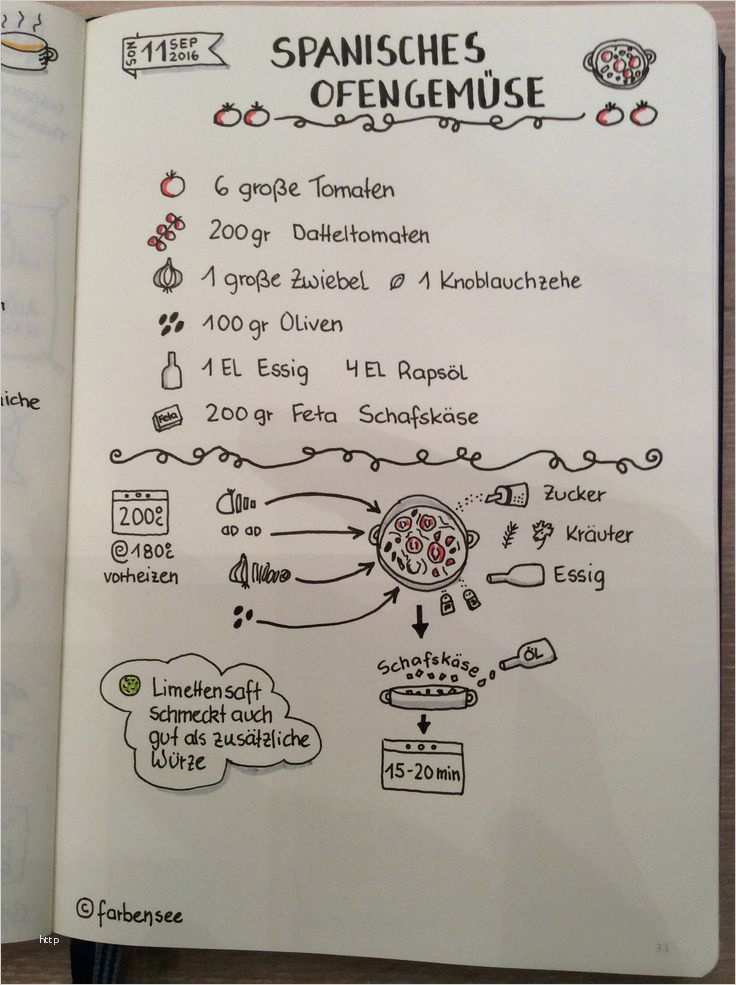 SON 11 SEP 2016
SPANISCHES
OFENGEMÜSE
6 große Tomaten
200gr Datteltomaten
1 große Zwiebel 1 Knoblauchzehe
100gr Oliven
1 EL Essig 4 EL Rapsöl
Feta 200gr Feta Schafskäse
200°C
@180°C
vorheizen
Zucker
Kräuter
Essig
Schafskäse
ÖL
15-20min
Limettensaft
schmeckt auch
gut als zusätzliche
Würze
© farbensee
http
33